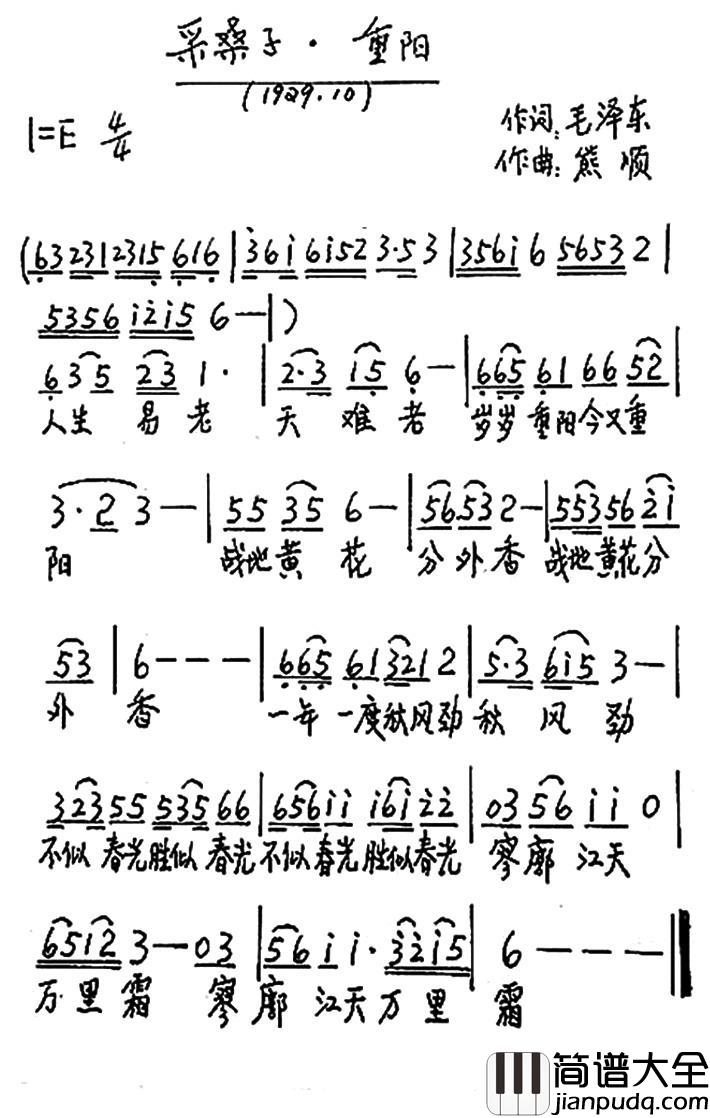 采桑子·重阳
(1929.10)
1=E 4/4
作词:毛泽东
作曲:熊顺
(63 231 2315 616 | 36i 6i52 3·5 3 | 356i 6 5653 2 |
5356 i2i5 6 — | )
6 35 23 1· | 2·3 i5 6 — | 665 61 66 52 |
人生 易老 天 难 老 岁岁重阳今又重
3·2 3 — | 55 35 6 — | 56 53 2 — | 553 56 2i |
阳 战地黄 花 分外香 战地黄花分
53 | 6 — — — | 665 61 321 2 | 5·3 6i5 3 — |
外 香 一年一度秋风劲 秋 风 劲
323 55 535 66 | 656 ii i6i 22 | 03 56 i i 0 |
不似春光胜似春光不似春光胜似春光 寥廓 江天
6512 3 — 03 | 56 i i· 32i5 | 6 — — — ‖
万里霜 寥廓 江天万里 霜
简谱大全
jianpudq.com